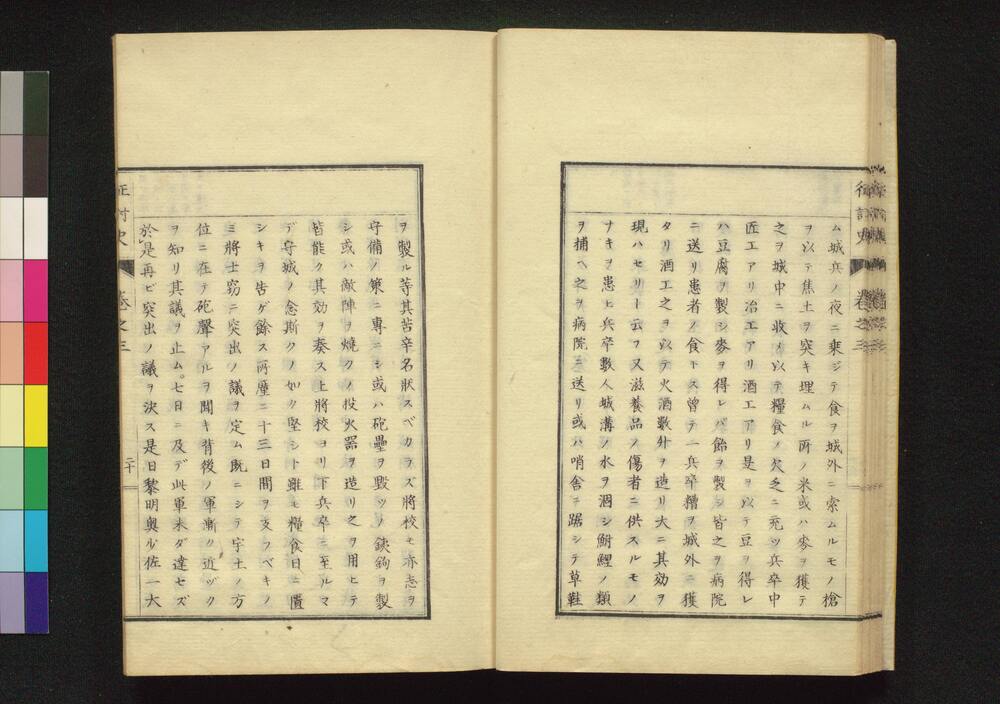 征討史 巻之三
ム城兵ノ夜ニ乗ジテ食ヲ城外ニ索ムルモノ槍
ヲ以テ焦土ヲ突キ理ムル所ノ米或ハ麥ヲ獲テ
之ヲ城中ニ收メ以テ糧食ノ欠乏ニ充ツ兵卒中
匠工アリ冶工アリ酒工アリ是ヲ以テ豆ヲ得レ
バ豆腐ヲ製シ麥ヲ得レバ飴ヲ製シ皆之ヲ病院
ニ送リ患者ノ食トス曽テ一兵卒糟ヲ城外ニ獲
タリ酒工之ヲ以テ火酒數升ヲ造リ大ニ其効ヲ
現ハセリト云フ又滋養品ノ傷者ニ供スルモノ
ナキヲ患ヒ兵卒數人城溝ノ水ヲ涸シ鮒鯉ノ類
ヲ捕ヘ之ヲ病院ニ送リ或ハ哨舎ニ踞シテ草鞋
ヲ製ル等其苦辛名狀スベカラズ將校モ亦志ヲ
守備ノ策ニ專ニシ或ハ砲壘ヲ毀ツノ鋏鉤ヲ製
シ或ハ敵陣ヲ燒クノ投火器ヲ造リ之ヲ用ヒテ
皆能ク其効ヲ奏ス上將校ヨリ下兵卒ニ至ルマ
デ守城ノ念斯クノ如ク堅シト雖モ糧食日ニ匱
シキヲ告ゲ餘ス所塵ニ十三日間ヲ支フベキノ
ミ將士窃ニ突出ノ議ヲ定ム既ニシテ宇土ノ方
位ニ在テ砲聲アルヲ聞キ背後ノ軍漸ク近ヅク
ヲ知リ其議ヲ止ム。七日ニ及デ此軍未ダ達セズ
於是再ビ突出ノ議ヲ決ス是日黎明奥少佐一大
征討史 巻之三 二十